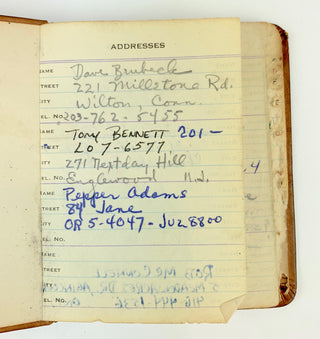 ADDRESSES
NAME Dave Brubeck
STREET 221 Millstone Rd.
CITY Wilton, Conn.
TEL. NO. 203-762-5455
NAME TONY BENNETT 201-
STREET LO 7-6577
CITY 271 Nextday Hill
Englewood N.J.
NAME Pepper Adams
STREET 84 Jane
CITY OR 5-4047 - JU2 8800
TEL. NO.
NAME
STREET
CITY
TEL. NO.